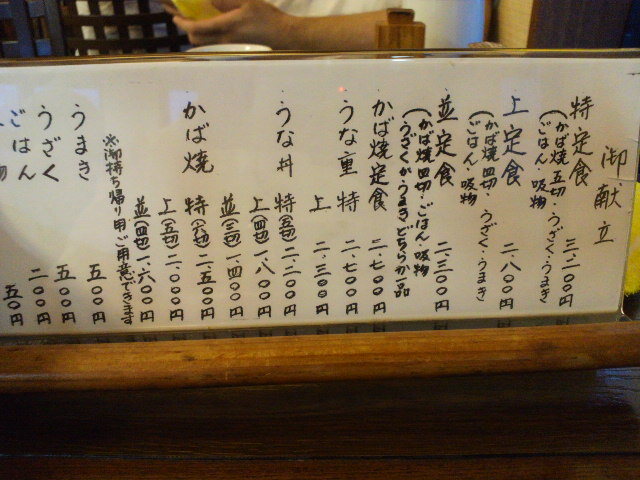 御献立
特定食 三、二〇〇円
(かば焼五切・うざく・うまき
ごはん・吸物
上定食 二、八〇〇円
(かば焼四切・うざく・うまき
ごはん・吸物
並定食 二、三〇〇円
(かば焼四切・ごはん・吸物
・うざくか・うまきどちらか一品
かば焼定食 二、七〇〇円
うな重 特 二、七〇〇円
上 二、三〇〇円
うな丼 特(五切)二、二〇〇円
上(四切)一、八〇〇円
並(三切)一、四〇〇円
かば焼 特(六切)二、五〇〇円
上(五切)二、〇〇〇円
並(四切)一、六〇〇円
※御持ち帰り用ご用意できます
うまき 五〇〇円
うざく 五〇〇円
ごはん 二〇〇円
五〇円